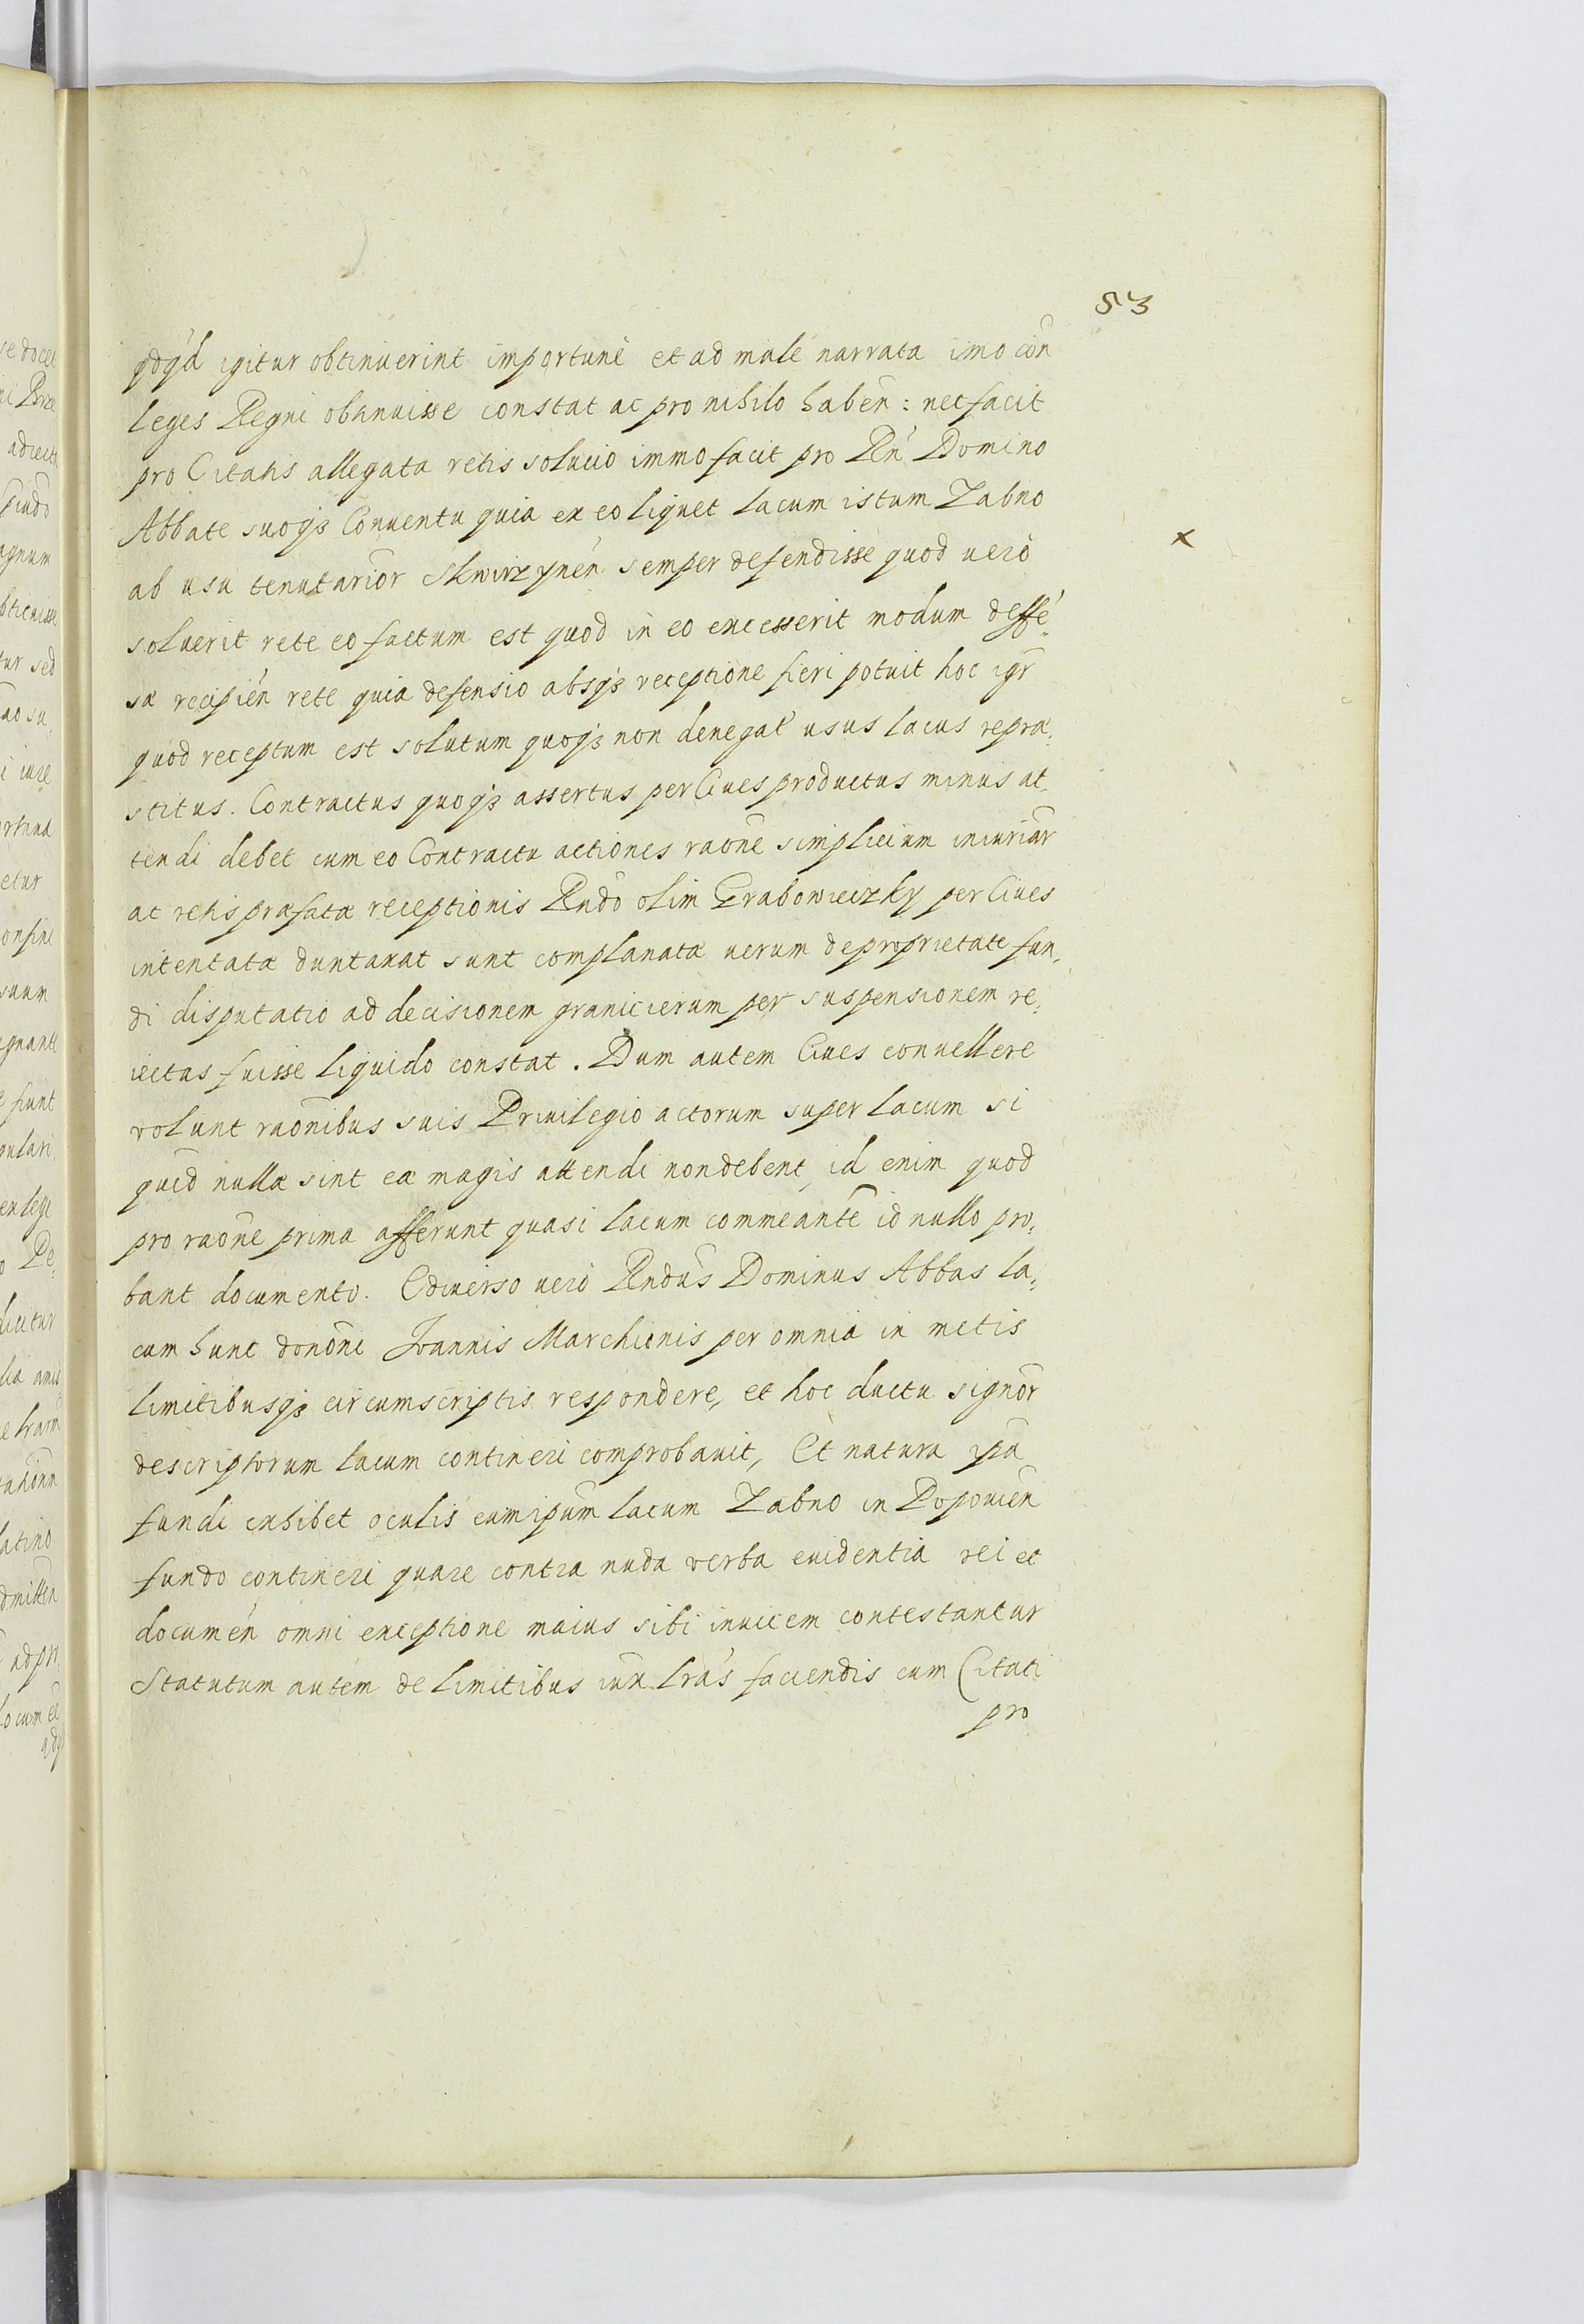 53
qdqd igitur obtinuerint importunè et ad malè narrata imo con̄
leges Regni obtinuisse constat ac pro nihilo haben̄: nec facit
pro Citatis allegata retis solucio immo facit pro Rn̄ Domino
Abbate suoqʒ Conuentu quia ex eo liquet lacum istum Zabno
x
ab usu tenutarior̄ Skwirzynen̄ semper defendisse quod uerò
soluerit rete eo factum est quod in eo excesserit modum deffē,
sæ recipien̄ rete quia defensio absqʒ receptione fieri potuit hoc igr̄
quod receptum est solutum quoqʒ non denegat̄ usus lacus repræ,
stitus. Contractus quoqʒ assertus per Ciues productus minus at,
tendi debet cum eo Contractu actiones raōne simplicium iniuriar̄
ac retis præfatæ receptionis Rndō olim Grabowieczky per Ciues
intentatæ duntaxat sunt complanatæ uerum de proprietate fun,
di disputatio ad decisionem granicierum per suspensionem re,
iectas fuisse liquido constat. Dum autem Ciues conuellere
volunt raōnibus suis Priuilegio actorum super lacum si
quid nullæ sint eæ magis attendi non debent, id enim quod
pro raōne prima afferunt quasi lacum commeantē id nullo pro,
bant documento. Ediuerso uerò Rndūs Dominus Abbas la,
cum hunc donōni Joannis Marchionis per omnia in metis
limitibusqʒ circumscriptis respondere, et hoc ductu signor̄
descriptorum lacum contineri comprobauit, Et natura ipā
fundi exhibet oculis eum ipūm lacum Zabno in Popouien̄
fundo contineri quare contra nuda verba euidentia rei et
documen̄ omni exceptione maius sibi inuicem contestantur
Statutum autem de limitibus iux lrās faciendis cum Citati
pro